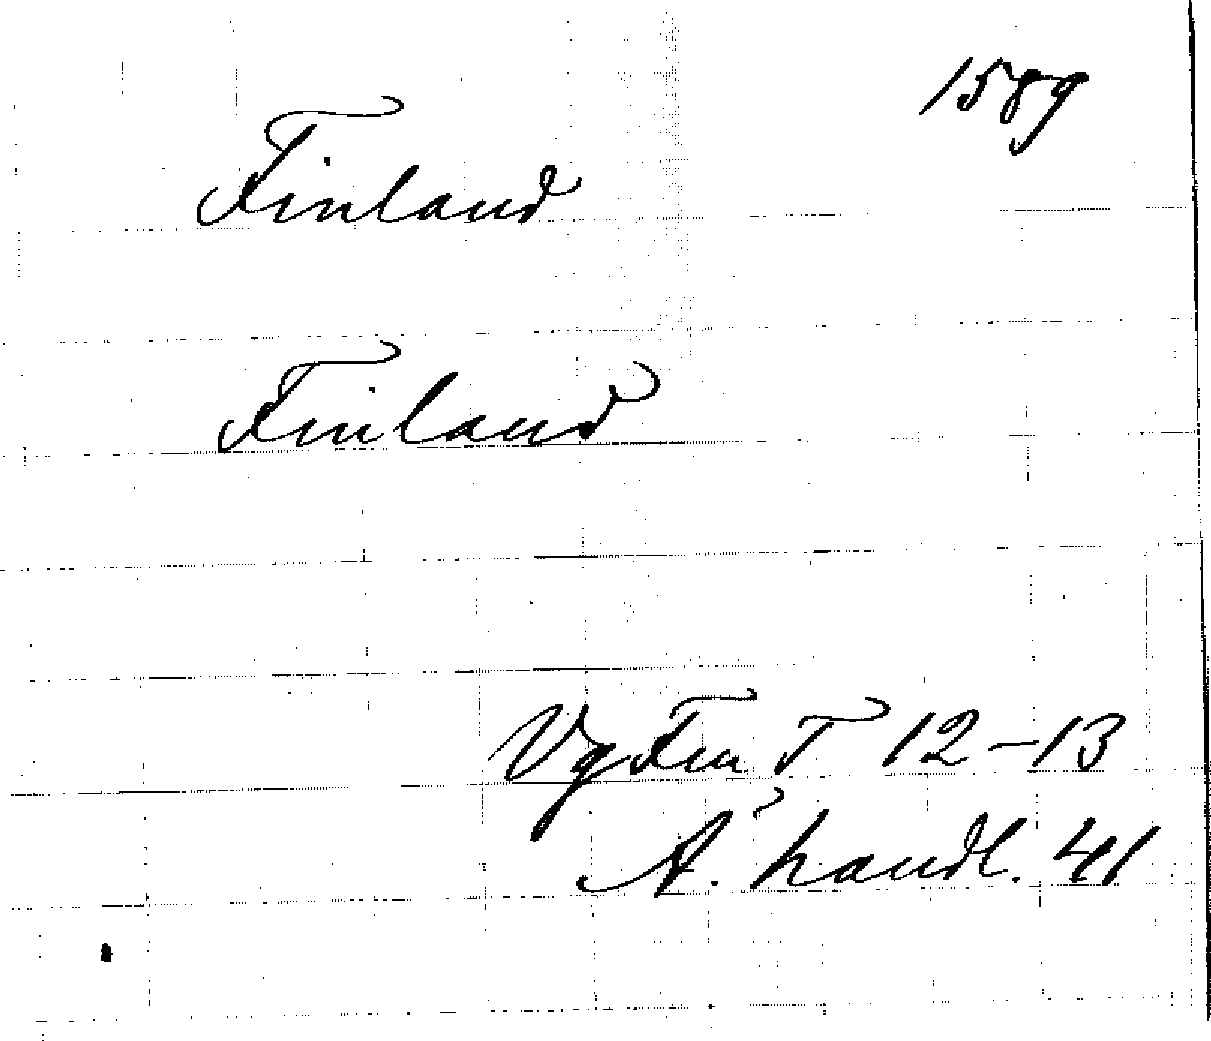 1589
Finland
Finland
Vg Fru T 12-13
Ä. handl. 41